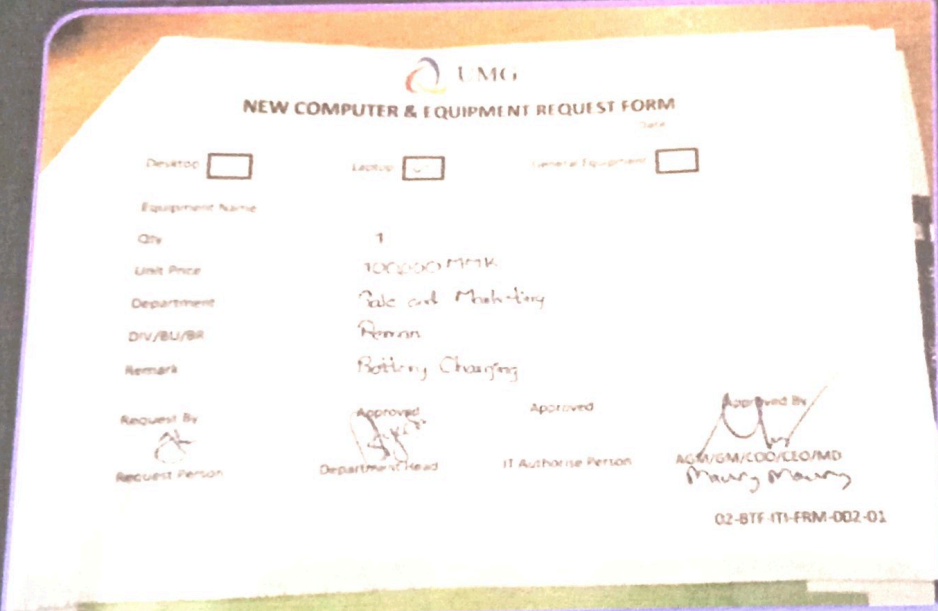 UMG
NEW COMPUTER & EQUIPMENT REQUEST FORM
Date
Desktop Laptop General Equipment
Equipment Name
Qty 1
Unit Price 100,000 MMK
Department Sale and Marketing
DIV/BU/BR
Remark Battery Charging
Request By Approved Approved Approved By
Request Person Department Head IT Authorise Person AGM/GM/COO/CEO/MD
Maung Maung
02-BTF-ITI-FRM-002-01